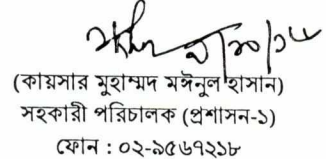 (কায়সার মুহাম্মদ মঈনুল হাসান)
সহকারী পরিচালক (প্রশাসন-১)
ফোন : ০২-৯৫৬৭২১৮